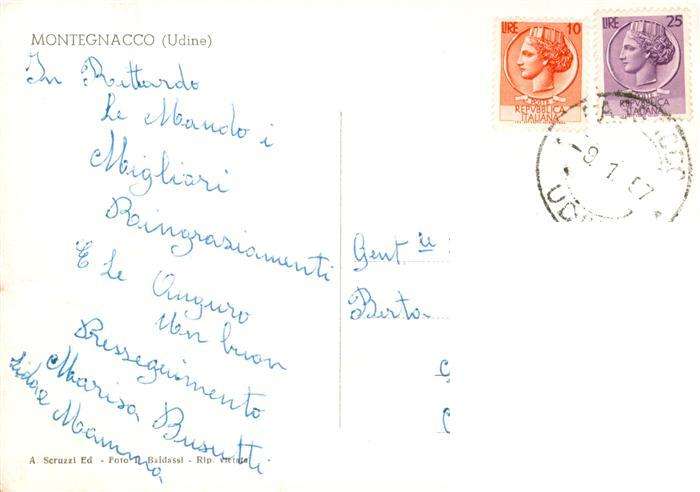 MONTEGNACCO (Udine)
In Rittardo
Le Mando i
Migliori
Raingrasiamenti
E Le Anguro
Un buon
Presseguimento
Marisa Busutti
Lida e Mamma
A. Scruzzi Ed - Foto D. Baldassi - Rip. vietata
LIRE 10
POSTE
REPVBBLICA
ITALIANA
LIRE 25
POSTE
REPVBBLICA
ITALIANA
9.7.67
Gent ie
Berto